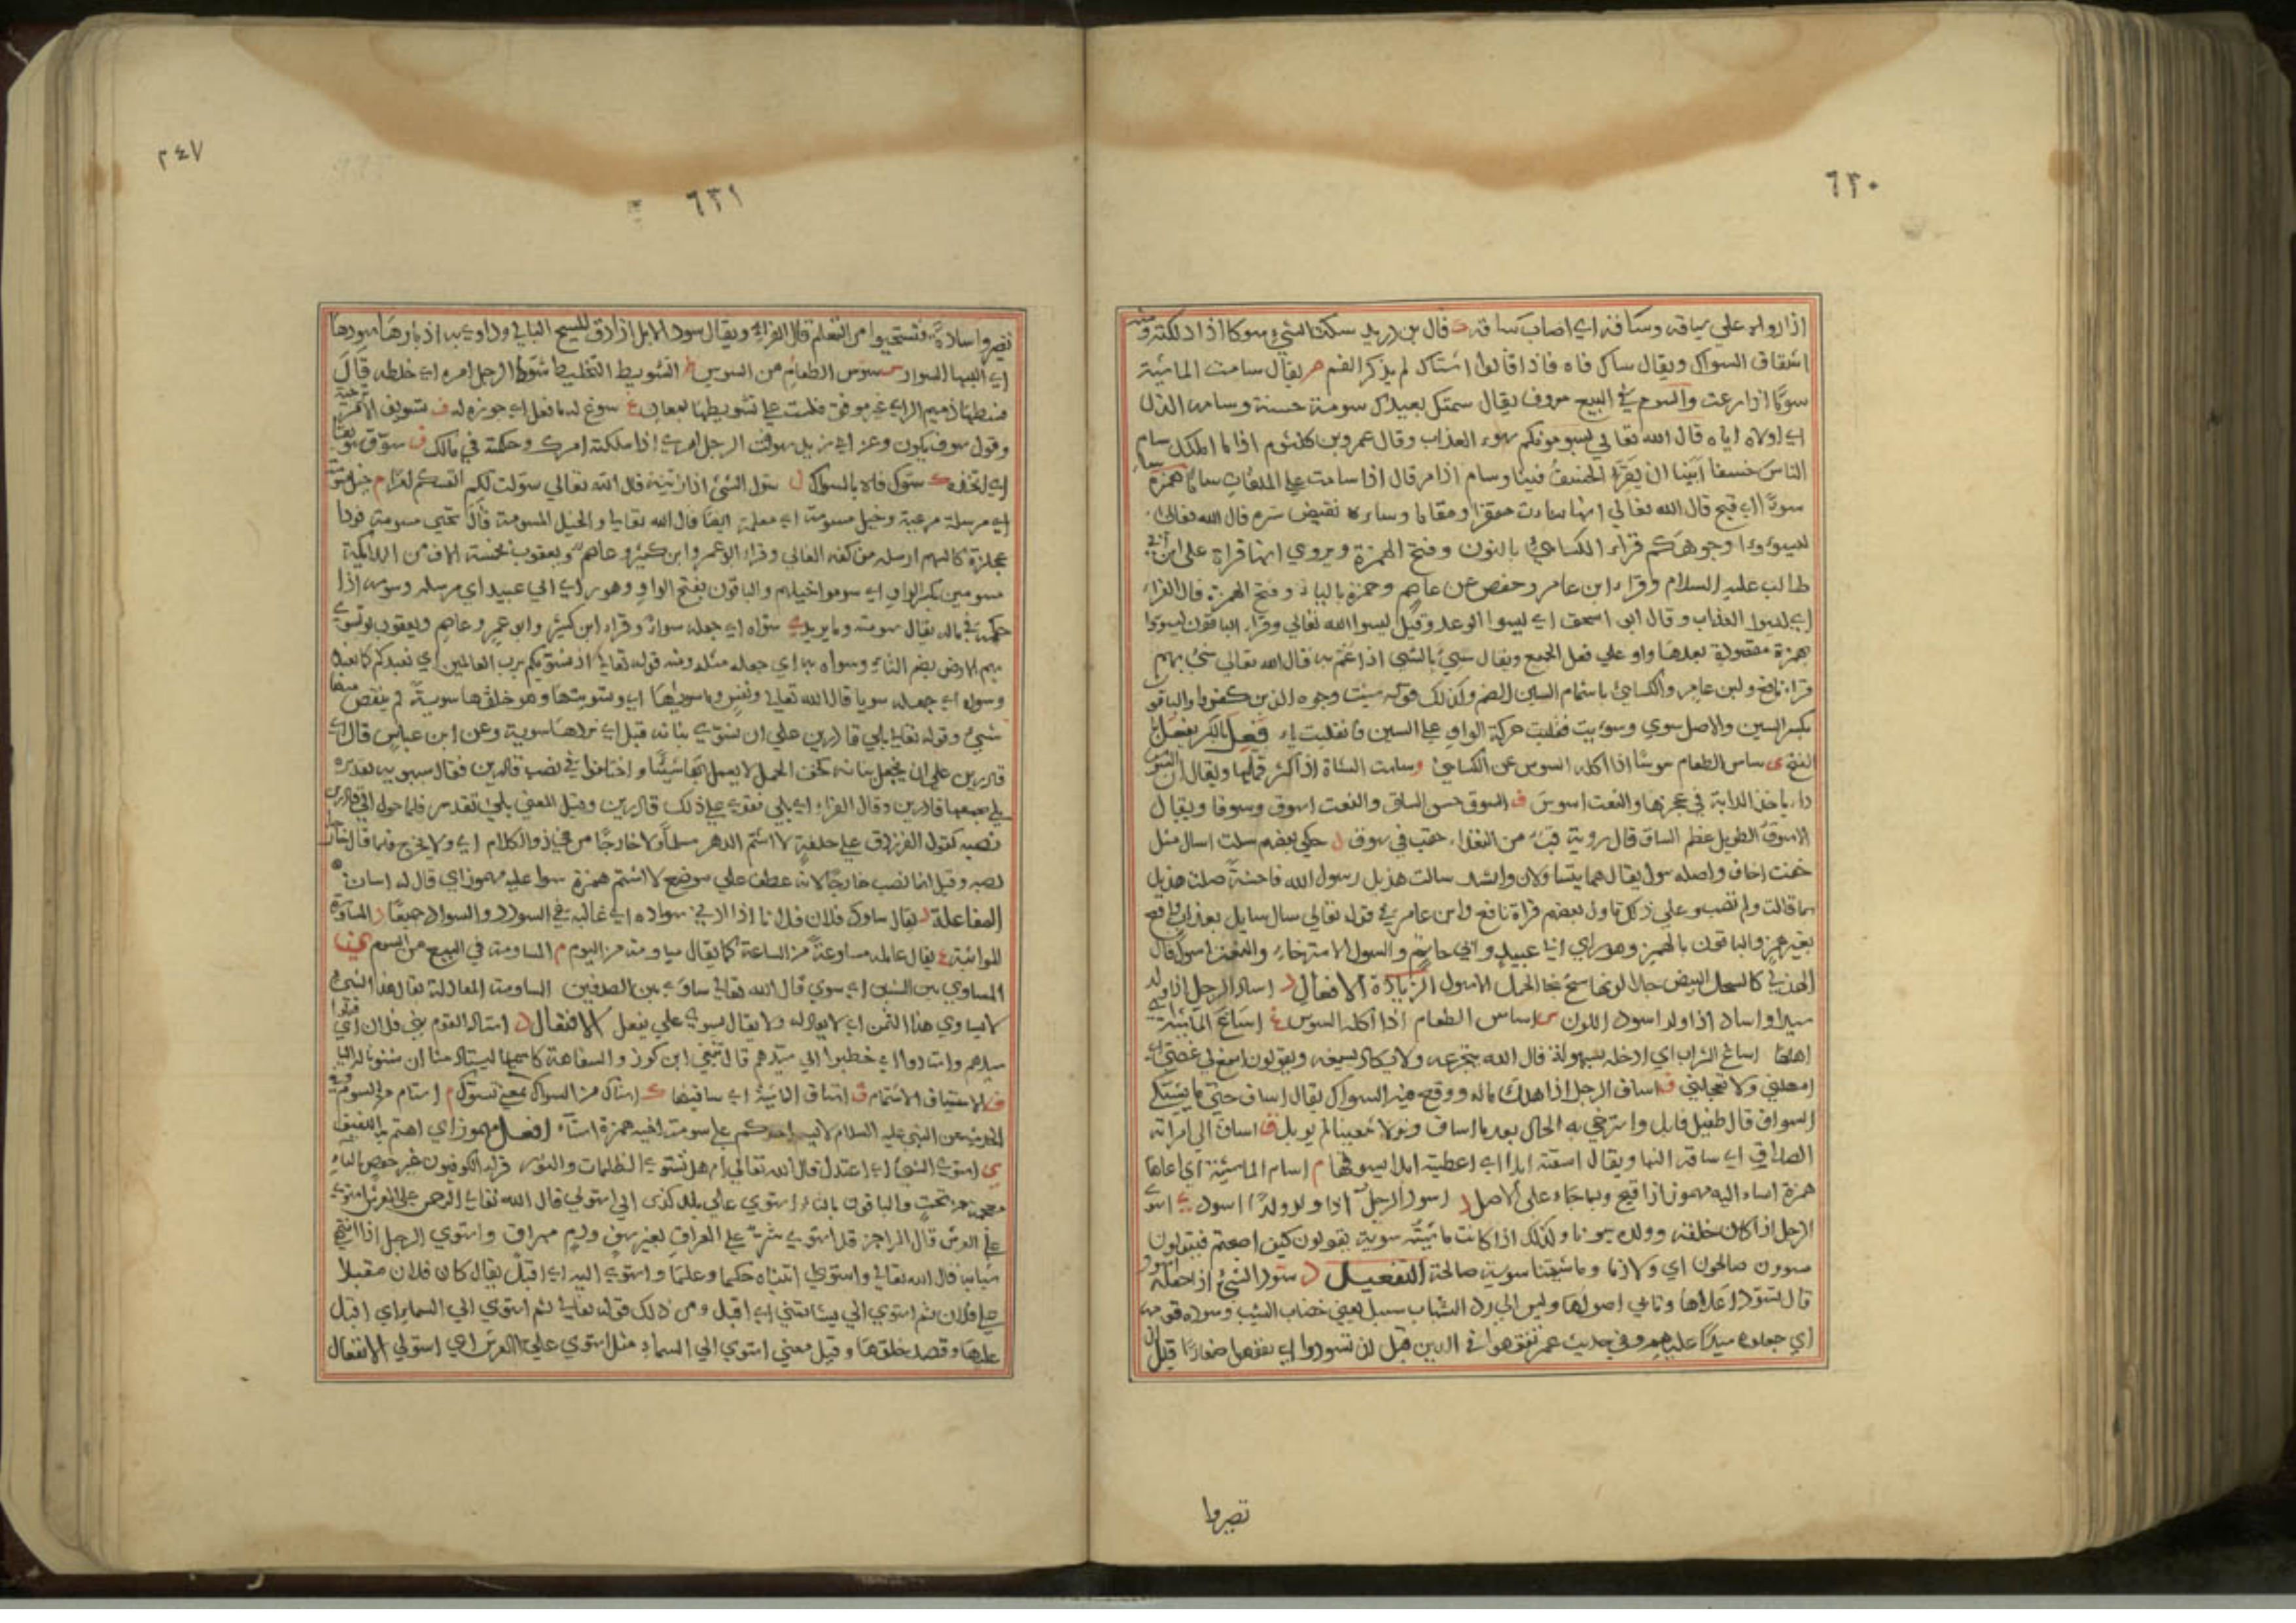 ٦٣٠
اذا رواه علي سياقه وسافه اي اصاب ساقه قال بن دريد سكت الشيء سوكا اذا دلكته ومنه
اشتقاق السواك ويقال ساك فاه فاذا قالوا استاك لم يذكر الفم م يقال سامت الماشية
سوما اذا رعت والسوم في البيع معروف يقال سمتك بعيرك سومة حسنة وسامه الذل
اي اولاه اياه قال الله تعالي يسومونكم سوء العذاب وقال عمرو بن كلثوم اذا ما الملك سام
الناس خسفا ابينا ان يقر الخسف فينا وسام اذا مر قال اذا سامت علي الملقات ساما همزة
سوءا اي قبح قال الله تعالي انها ساءت مستقرا ومقاما وساءه نقيض سره قال الله تعالي
ليسوءوا وجوهكم قراء الكسائي بالنون وفتح الهمزة ويروي انها قراة علي ابن ابي
طالب عليه السلام وقراء ابن عامر وحفص عن عاصم وحمزة بالياء وفتح الهمزة قال الفراء
اي ليسوء العذاب وقال ابو اسحق اي ليسوء الوعد وقيل ليسوء الله تعالي وقراء الباقون ليسوءوا
بهمزة مضمومة بعدها واو علي فعل الجمع ويقال سيء بالشي اذا غم به قال الله تعالي سيء بهم
قراء نافع وابن عامر والكسائي باشمام السين الضم وكذلك قوله سيئت وجوه الذين كفروا والباقون
بكسر السين والاصل سوي وسويت فنقلت حركة الواو علي السين فانقلبت ياء فعل بالكسر يفعل
الفتح س ساس الطعام سوسا اذا اكله السوس عن الكسائي وساست الشاة اذا اكثر قملها ويقال ان السوس
داء ياخذ الدابة في عجزها والنعت اسوس ف السوق حسن الساق والنعت اسوق وسوقا ويقال
الاسوق الطويل عظم الساق قال روبة قب من التعداء حقب في سوق ل حكي بعضهم سلت اسال مثل
خفت اخاف واصله سول يقال هما يتساولان وانشد سالت هذيل رسول الله فاحشة ضلت هذيل
بما قالت ولم تصب وعلي ذلك تاول بعضهم قراة نافع وابن عامر في قوله تعالي سال سايل بعذاب واقع
بغير همز والباقون بالهمز وهو راي ابي عبيد وابي حاتم والسول الاسترخاء والنعت اسول قال
الهذلي كالسحل البيض جلا لونها سح نجا الحمل الاسول الزيادة الافعال د اساد الرجل اذا ولد
سيدا واساد اذا ولد اسود اللون س اساس الطعام اذا اكله السوس غ اساع الماشية اي
اهملها اساغ الشراب اي ادخله بسهولة قال الله يتجرعه ولا يكاد يسيغه ويقولون اسغ لي غصتي اي
امهلني ولا تعجلني ف اساف الرجل اذا هلك ماله ووقع فيه السواف يقال اساف حتي ما يشتكي
السواف قال طفيل فابل واسترخي به الخطب بعد ما اساف ولولا سعينا لم يوبل ق اساق الي امراته
الصداق اي ساقه اليها ويقال اسقته ابلا اي اعطيته ابلا يسوقها م اسام الماشية اي رعاها
همزة اساء اليه مهموز اذا قبح وربما جاء علي الاصل د اسود الرجل اذا ولد ولدا اسود ي استوي
الرجل اذا كان خلقه وولده سويا وكذلك اذا كانت ماشيته سوية يقولون كيف اصبحتم فيقولون
مسوون صالحون اي ولادنا وماشيتنا سوية صالحة التفعيل د سود الشيء اذ جعله اسود
قال تسود اعلاها وتابي اصولها وليس الي رد الشباب سبيل يعني خضاب الشيب وسوده قومه
اي جعلوه سيدا عليهم وفي حديث عمر تفقهوا في الدين قبل ان تسودوا اي تفقهوا صغارا قبل ان
تصيروا
٢٤٧
٦٣١
تصيروا سادة فتستحيوا من التعلم قال الفراء ويقال سود الابل اذا دق المسح البالي وداوي به ادبارها سودها
اي البسها السواد س سوس الطعام من السوس ط التسويط التخليط سوط الرجل امره اي خلطه قال
فسطها ذميم الراي غير موفق فلست علي تسويطها بمعان غ سوغ له ما فعل اي جوزه له ف تسويف الامر ترجية
وقول سوف يكون وعن ابي زيد سوفت الرجل امري اذا ملكته امرك وحكمته في مالك ق سوق سويقا
اي اتخذه ك سوك فاه بالسواك ل سول الشيء اذا زينه قال الله تعالي سولت لكم انفسكم امرا م خيل مسومة
اي مرسلة مرعية وخيل مسومة اي معلمة ايضا قال الله تعالي والخيل المسومة قال تحتي مسومة قودا
عجلزة كالسهم ارسله من كفه الغالي وقراء ابو عمرو وابن كثير وعاصم ويعقوب بخمسة الاف من الملائكة
مسومين بكسر الواو اي سوموا خيلهم والباقون بفتح الواو وهو راي ابي عبيد اي مرسلة وسومه اذا
حكمه في ماله يقال سومته وما يريد ي سواه اي جعله سواء وقراء ابن كثير وابو عمرو وعاصم ويعقوب لو تسوي
بهم الارض بضم التاء وسواه به اي جعله مثله ومنه قوله تعالي اذ نسويكم برب العالمين اي نعبدكم كما نعبده
وسواه اي جعله سويا قال الله تعالي ونفس وما سواها اي وتسويتها وهو خلقها سوية لم ينقص منها
شيء وقوله تعالي بلي قادرين علي ان نسوي بنانه قيل اي نردها سوية وعن ابن عباس قال اي
قادرين علي ان نجعل بنانه كخف الجمل لا يعمل بها شيئا واختلفوا في نصب قادرين فقال سيبويه تقديره
بلي نجمعها قادرين وقال الفراء اي بلي نقوي علي ذلك قادرين وقيل المعني بلي نقدر فلما حول الي قادرين
نصبه كقول الفرزدق علي حلفة لا اشتم الدهر مسلما ولا خارجا من في زور الكلام اي ولا يخرج فلما قال خارجا
نصبه وقيل انما نصب خارجا لانه عطف علي موضع لا اشتم همزة سوا عليه مهموز اي قال له اسات
المفاعلة د يقال ساود فلان فلانا اذا لاقي سواده اي غالبه في السودد والسواد جميعا ر المساورة
المواثبة ع يقال عامله مساوعة من الساعة كما يقال مياومة من اليوم م المساومة في البيع من السوم ي
المساوي بين الشيئين اي سوي قال الله تعالي ساوي بين الصدفين المساواة المعادلة يقال هذا الشيء
لا يساوي هذا الثمن اي لا يعادله ولا يقال يسوي علي يفعل الافتعال د استاد القوم بني فلان اي قتلوا
سيدهم واستادوا اي خطبوا الي سيدهم قال تمني ابن كوز والسفاهة كاسمها ليستاد منا ان شتونا لياليا
ف الاستياف الاشتمام ق استاق الماشية اي ساقها ك استاك من السواك بمعني تسوك م استام من السوم وفي
الحديث عن النبي عليه السلام لا يستام احدكم علي سومة اخيه همزة استاء افتعل مهموز اي اهتم
ي استوي الشيء اي اعتدل قال الله تعالي ام هل تستوي الظلمات والنور قراء الكوفيون غير حفص بالياء
معجمة من تحت والباقون بالتاء واستوي علي بلد كذي اي استولي قال الله تعالي الرحمن علي العرش استوي
علي العرش قال الراجز قد استوي بشر علي العراق بغير سيف ودم مهراق واستوي الرجل اذا انتهي
شبابه قال الله تعالي واستوي اتيناه حكما وعلما واستوي اليه اي اقبل يقال كان فلان مقبلا
علي فلان ثم استوي الي يشاتمني اي اقبل ومن ذلك قوله تعالي ثم استوي الي السماء اي اقبل
عليها وقصد خلقها وقيل معني استوي الي السماء مثل استوي علي العرش اي استولي الانفعال